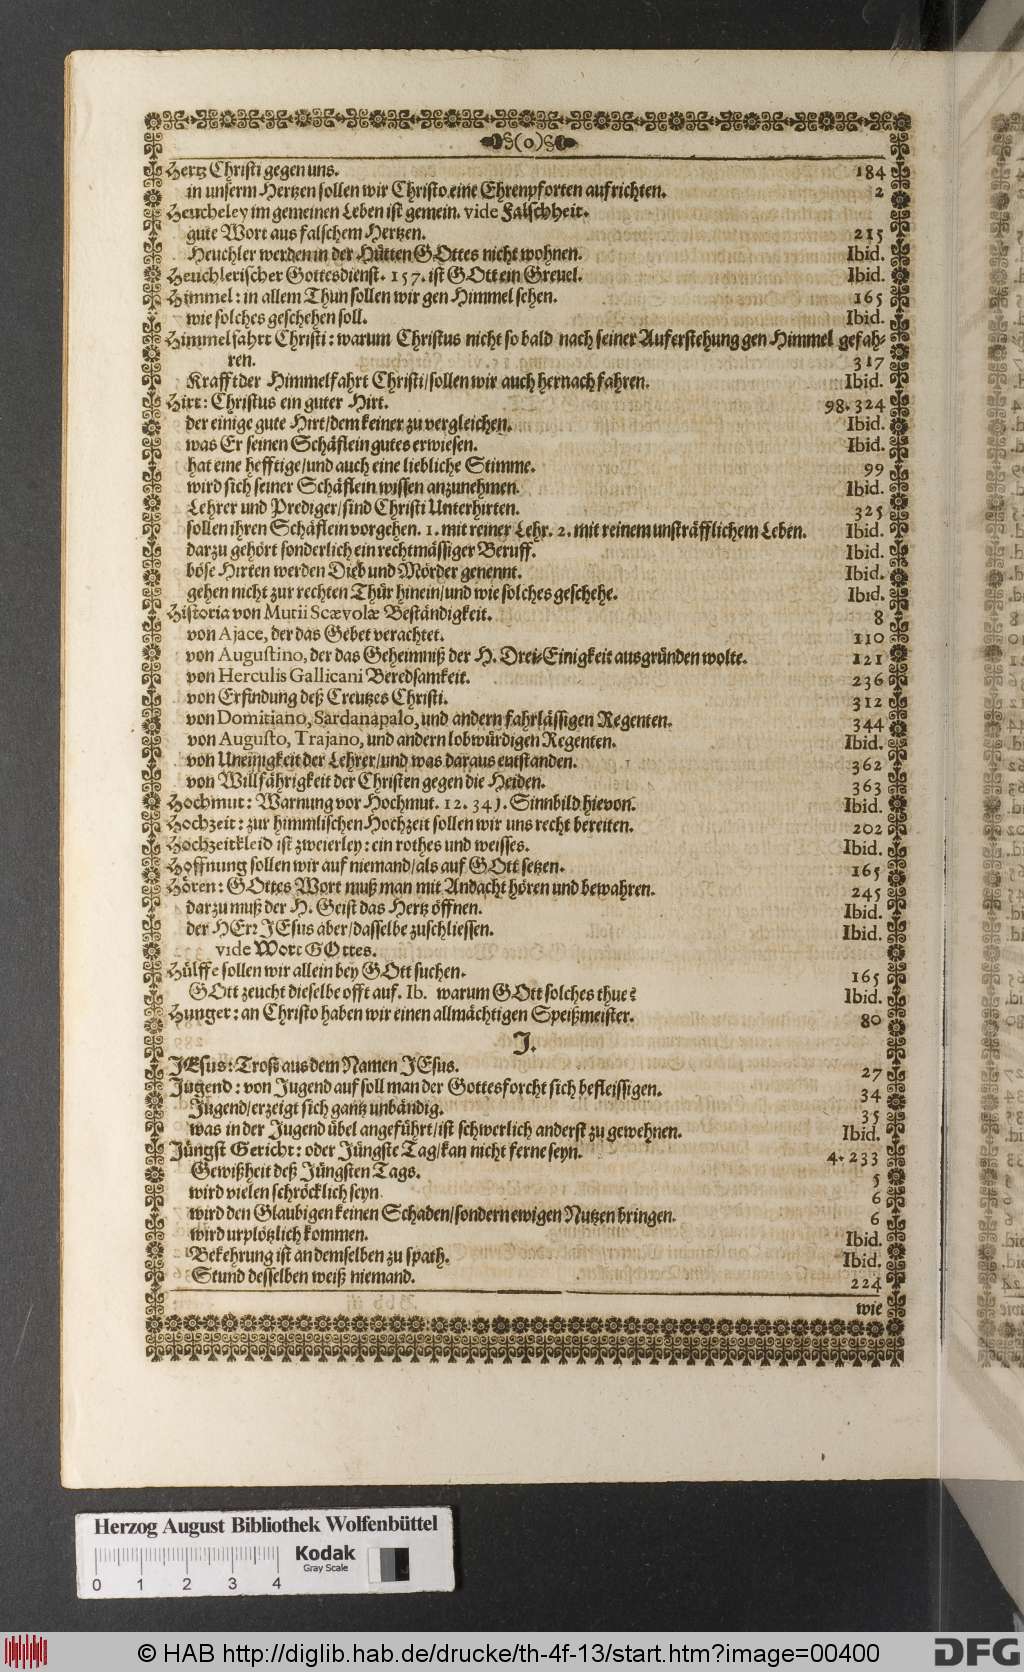 §(o)§
Hertz Christi gegen uns. 184
in unserm Hertzen sollen wir Christo eine Ehrenpforten aufrichten. 2
Heucheley im gemeinen Leben ist gemein. vide Falschheit.
gute Wort aus falschem Hertzen. 215
Heuchler werden in der Hütten GOttes nicht wohnen. Ibid.
Heuchlerischer Gottesdienst. 157. ist GOtt ein Greuel. Ibid.
Himmel: in allem Thun sollen wir gen Himmel sehen. 165
wie solches geschehen soll. Ibid.
Himmelfahrt Christi: warum Christus nicht so bald nach seiner Auferstehung gen Himmel gefah-
ren. 317
Krafft der Himmelfahrt Christi/ sollen wir auch hernach fahren. Ibid.
Hirt: Christus ein guter Hirt. 98. 324
der einige gute Hirt/ dem keiner zu vergleichen. Ibid.
was Er seinen Schäflein gutes erwiesen. Ibid.
hat eine hefftige/ und auch eine liebliche Stimme. 99
wird sich seiner Schäflein wissen anzunehmen. Ibid.
Lehrer und Prediger/ sind Christi Unterhirten. 325
sollen ihren Schäflein vorgehen. 1. mit reiner Lehr. 2. mit reinem unsträfflichem Leben. Ibid.
darzu gehört sonderlich ein rechtmässiger Beruff. Ibid.
böse Hirten werden Dieb und Mörder genennt. Ibid.
gehen nicht zur rechten Thür hinein/ und wie solches geschehe. Ibid.
Historia von Mutii Scævolæ Beständigkeit. 8
von Ajace, der das Gebet verachtet. 110
von Augustino, der das Geheimniß der H. Drei-Einigkeit ausgründen wolte. 121
von Herculis Gallicani Beredsamkeit. 236
von Erfindung deß Creutzes Christi. 312
von Domitiano, Sardanapalo, und andern fahrlässigen Regenten. 344
von Augusto, Trajano, und andern lobwürdigen Regenten. Ibid.
von Uneinigkeit der Lehrer/ und was daraus entstanden. 362
von Willfährigkeit der Christen gegen die Heiden. 363
Hochmut: Warnung vor Hochmut. 12. 341. Sinnbild hievon. Ibid.
Hochzeit: zur himmlischen Hochzeit sollen wir uns recht bereiten. 202
Hochzeitkleid ist zweierley: ein rothes und weisses. Ibid.
Hoffnung sollen wir auf niemand/ als auf GOtt setzen. 165
Hören: GOttes Wort muß man mit Andacht hören und bewahren. 245
darzu muß der H. Geist das Hertz öffnen. Ibid.
der HErr JEsus aber/ dasselbe zuschliessen. Ibid.
vide Wort GOttes.
Hülffe sollen wir allein bey GOtt suchen. 165
GOtt zeucht dieselbe offt auf. Ib. warum GOtt solches thue? Ibid.
Hunger: an Christo haben wir einen allmächtigen Speißmeister. 80
J.
JEsus: Trost aus dem Namen JEsus. 27
Jugend: von Jugend auf soll man der Gottesforcht sich befleissigen. 34
Jugend/ erzeigt sich gantz unbändig. 35
was in der Jugend übel angeführt/ ist schwerlich anderst zu gewehnen. Ibid.
Jüngst Gericht: oder Jüngste Tag/ kan nicht ferne seyn. 4. 233
Gewißheit deß Jüngsten Tags. 5
wird vielen schröcklich seyn. 6
wird den Glaubigen keinen Schaden/ sondern ewigen Nutzen bringen. 6
wird urplötzlich kommen. Ibid.
Bekehrung ist an demselben zu spath. Ibid.
Stund desselben weiß niemand. 224
wie
Herzog August Bibliothek Wolfenbüttel
Kodak
Gray Scale
0 1 2 3 4
© HAB http://diglib.hab.de/drucke/th-4f-13/start.htm?image=00400
DFG